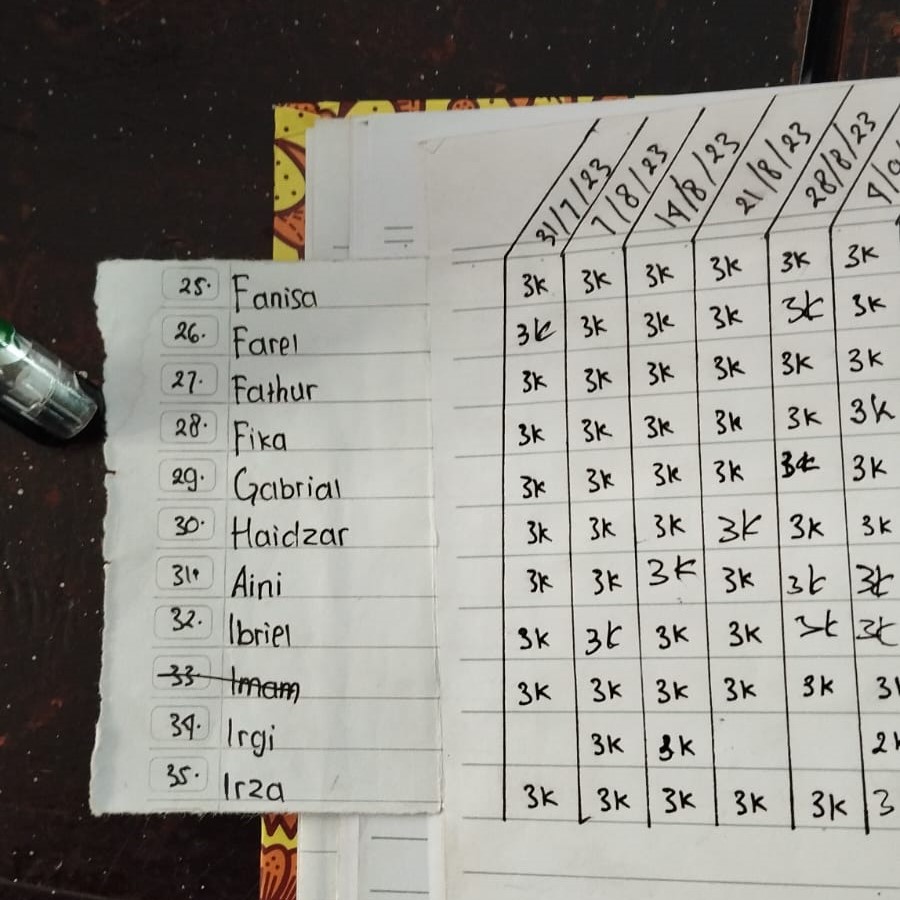 31/7/23 7/8/23 14/8/23 21/8/23 28/8/23
25. Fanisa 3k 3k 3k 3k 3k 3k
26. Farel 3k 3k 3k 3k 3k 3k
27. Fathur 3k 3k 3k 3k 3k 3k
28. Fika 3k 3k 3k 3k 3k 3k
29. Gabrial 3k 3k 3k 3k 3k 3k
30. Haidzar 3k 3k 3k 3k 3k 3k
31. Aini 3k 3k 3k 3k 3k 3k
32. Ibriel 3k 3k 3k 3k 3k 3k
33 Imam 3k 3k 3k 3k 3k
34. Irgi 3k 3k
35. Irza 3k 3k 3k 3k 3k 3